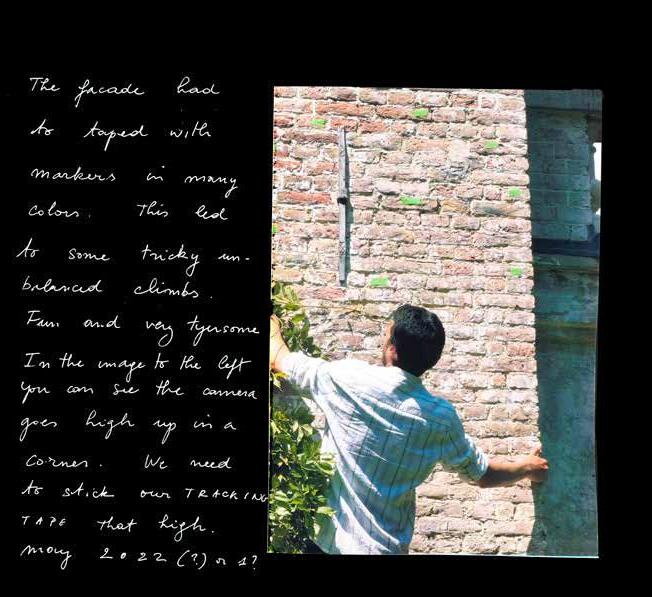 The facade had
to taped with
markers in many
colors. This led
to some tricky un-
balanced climbs.
Fun and very tyersome
In the image to the left
you can see the camera
goes high up in a
corner. We need
to stick our TRACKING
TAPE that high.
may 2022 (?) or 1?